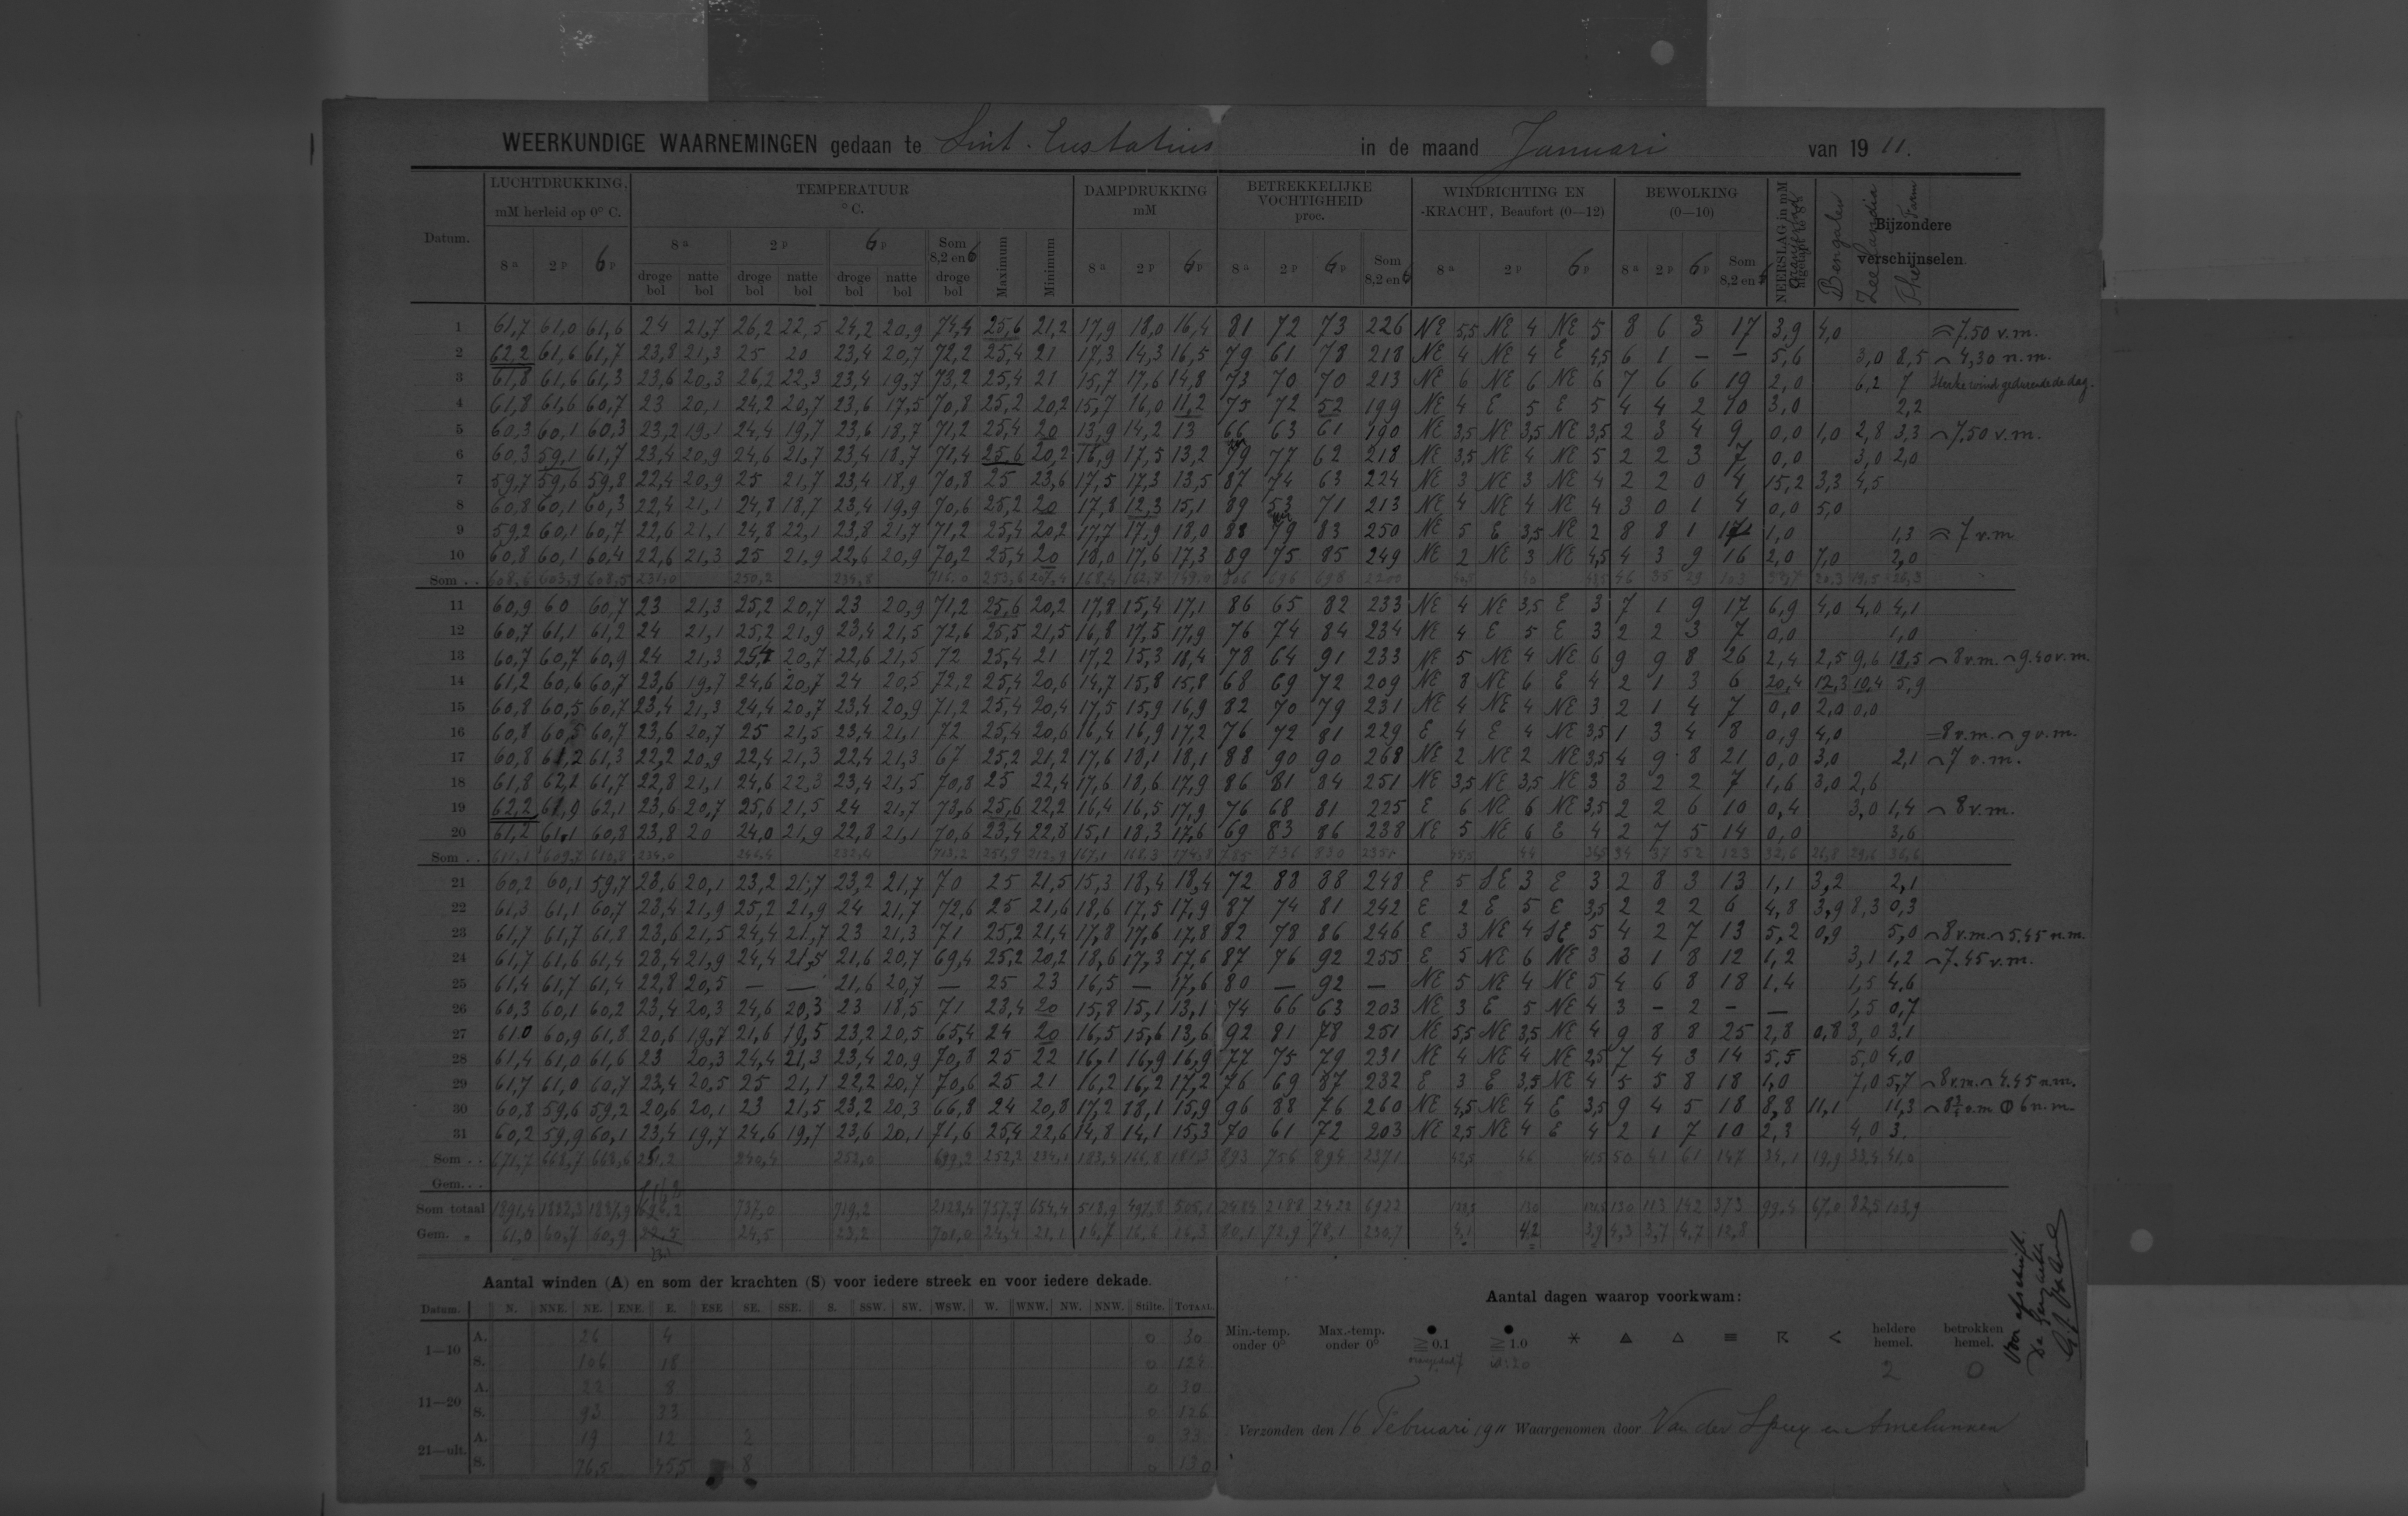 WEERKUNDIGE WAARNEMINGEN gedaan te Sint. Eustatius in de maand Januari van 19 11.
Datum. LUCHTDRUKKING, mM herleid op 0° C. TEMPERATUUR °C. DAMPDRUKKING mM BETREKKELIJKE VOCHTIGHEID proc. WINDRICHTING EN -KRACHT, Beaufort (0—12) BEWOLKING (0—10) NEERSLAG in mM Bengalen Zeelandia Bijzondere verschijnselen.
8 a 2 p 6 p 8 a 2 p 6 p Som 8,2 en 6 Maximum Minimum 8 a 2 p 6 p 8 a 2 p 6 p Som 8,2 en 6 8 a 2 p 6 p 8 a 2 p 6 p Som 8,2 en 6
droge bol natte bol droge bol natte bol droge bol natte bol droge bol
1 61,7 61,0 61,6 24 21,7 26,2 22,5 24,2 20,9 74,4 25,6 21,2 17,9 18,0 16,4 81 72 73 226 NE 5,5 NE 4 NE 5 8 6 3 17 3,9 4,0 7.50 v.m.
2 62,2 61,6 61,7 23,8 21,3 25 20 23,4 20,7 72,2 25,4 21 17,3 14,3 16,5 79 61 78 218 NE 4 NE 4 E 4,5 6 1 — — 5,6 3,0 8,5 4,30 n.m.
3 61,8 61,6 61,3 23,6 20,3 26,2 22,3 23,4 19,7 73,2 25,4 21 15,7 17,6 14,8 73 70 70 213 NE 6 NE 6 NE 6 7 6 6 19 2,0 6,2 7 Sterke wind gedurende de dag.
4 61,8 61,6 60,7 23 20,1 24,2 20,7 23,6 17,5 70,8 25,2 20,2 15,7 16,0 11,2 75 72 52 199 NE 4 E 5 E 5 4 4 2 10 3,0 2,2
5 60,3 60,1 60,3 23,2 19,1 24,4 19,7 23,6 18,7 71,2 25,4 20 13,9 14,2 13 66 63 61 190 NE 3,5 NE 3,5 NE 3,5 2 3 4 9 0,0 1,0 2,8 3,3 7.50 v.m.
6 60,3 59,1 61,7 23,4 20,9 24,6 21,7 23,4 18,7 71,4 25,6 20,2 16,9 17,5 13,2 79 77 62 218 NE 3,5 NE 4 NE 5 2 2 3 7 0,0 3,0 2,0
7 59,7 59,6 59,8 22,4 20,9 25 21,7 23,4 18,9 70,8 25 23,6 17,5 17,3 13,5 87 74 63 224 NE 3 NE 3 NE 4 2 2 0 4 15,2 3,3 4,5
8 60,8 60,1 60,3 22,4 21,1 24,8 18,7 23,4 19,9 70,6 25,2 20 17,8 12,3 15,1 89 53 71 213 NE 4 NE 4 NE 4 3 0 1 4 0,0 5,0
9 59,2 60,1 60,7 22,6 21,1 24,8 22,1 23,8 21,7 71,2 25,4 20,2 17,7 17,9 18,0 88 79 83 250 NE 5 E 3,5 NE 2 8 8 1 17 1,0 1,3 7 v.m
10 60,8 60,1 60,4 22,6 21,3 25 21,9 22,6 20,9 70,2 25,4 20 18,0 17,6 17,3 89 75 85 249 NE 2 NE 3 NE 4,5 4 3 9 16 2,0 7,0 2,0
Som . . 608,6 603,9 608,5 231,0 250,2 234,8 716,0
11 60,9 60 60,7 23 21,3 25,2 20,7 23 20,9 71,2 25,6 20,2 17,8 15,4 17,1 86 65 82 233 NE 4 NE 3,5 E 3 7 1 9 17 6,9 4,0 4,0 4,1
12 60,7 61,1 61,2 24 21,1 25,2 21,9 23,4 21,5 72,6 25,5 21,5 16,8 17,5 17,9 76 74 84 234 NE 4 E 5 E 3 2 2 3 7 0,0 1,0
13 60,7 60,7 60,9 24 21,3 25,4 20,7 22,6 21,5 72 25,4 21 17,2 15,3 18,4 78 64 91 233 NE 5 NE 4 NE 6 9 9 8 26 2,4 2,5 9,6 18,5 8 v.m. 9.40 v.m.
14 61,2 60,6 60,7 23,6 19,7 24,6 20,7 24 20,5 72,2 25,4 20,6 14,7 15,8 15,8 68 69 72 209 NE 8 NE 6 E 4 2 1 3 6 20,4 12,3 10,4 5,9
15 60,8 60,5 60,7 23,4 21,3 24,4 20,7 23,4 20,9 71,2 25,4 20,4 17,5 15,9 16,9 82 70 79 231 NE 4 NE 4 NE 3 2 1 4 7 0,0 2,0 0,0
16 60,8 60,5 60,7 23,6 20,7 25 21,5 23,4 21,1 72 25,4 20,6 16,4 16,9 17,2 76 72 81 229 E 4 E 4 NE 3,5 1 3 4 8 0,9 4,0 8 v.m. 9 v.m.
17 60,8 61,2 61,3 22,2 20,9 22,4 21,3 22,4 21,3 67 25,2 21,2 17,6 18,1 18,1 88 90 90 268 NE 2 NE 2 NE 3,5 4 9 8 21 0,0 3,0 2,1 7 v.m.
18 61,8 62,1 61,7 22,8 21,1 24,6 22,3 23,4 21,5 70,8 25 22,4 17,6 18,6 17,9 86 81 84 251 NE 3,5 NE 3,5 NE 3 3 2 2 7 1,6 3,0 2,6
19 62,2 61,9 62,1 23,6 20,7 25,6 21,5 24 21,7 73,6 25,6 22,2 16,4 16,5 17,9 76 68 81 225 E 6 NE 6 NE 3,5 2 2 6 10 0,4 3,0 1,4 8 v.m.
20 61,2 61,1 60,8 23,8 20 24,0 21,9 22,8 21,1 70,6 23,4 22,8 15,1 18,3 17,6 69 83 86 238 NE 5 NE 6 E 4 2 7 5 14 0,0 3,6
Som . . 34 37 52 123 32,6
21 60,2 60,1 59,7 23,6 20,1 23,2 21,7 23,2 21,7 70 25 21,5 15,3 18,4 18,4 72 88 88 248 E 5 SE 3 E 3 2 8 3 13 1,1 3,2 2,1
22 61,3 61,1 60,7 23,4 21,9 25,2 21,9 24 21,7 72,6 25 21,6 18,6 17,5 17,9 87 74 81 242 E 2 E 5 E 3,5 2 2 2 6 4,8 3,9 8,3 0,3
23 61,7 61,7 61,8 23,6 21,5 24,4 21,7 23 21,3 71 25,2 21,4 17,8 17,6 17,8 82 78 86 246 E 3 NE 4 SE 5 4 2 7 13 5,2 0,9 5,0 8 v.m. 5.45 n.m.
24 61,7 61,6 61,4 23,4 21,9 24,4 21,5 21,6 20,7 69,4 25,2 20,2 18,6 17,3 17,6 87 76 92 255 E 5 NE 6 NE 3 3 1 8 12 1,2 3,1 1,2 7.45 v.m.
25 61,4 61,7 61,4 22,8 20,5 — — 21,6 20,7 — 25 23 16,5 — 17,6 80 — 92 — NE 5 NE 4 NE 5 4 6 8 18 1,4 1,5 4,6
26 60,3 60,1 60,2 23,4 20,3 24,6 20,3 23 18,5 71 23,4 20 15,8 15,1 13,1 74 66 63 203 NE 3 E 5 NE 4 3 - 2 - — 1,5 0,7
27 61,0 60,9 61,8 20,6 19,7 21,6 19,5 23,2 20,5 65,4 24 20 16,5 15,6 13,6 92 81 78 251 NE 5,5 NE 3,5 NE 4 9 8 8 25 2,8 0,8 3,0 3,1
28 61,4 61,0 61,6 23 20,3 24,4 21,3 23,4 20,9 70,8 25 22 16,1 16,9 16,9 77 75 79 231 NE 4 NE 4 NE 2,5 7 4 3 14 5,5 5,0 4,0
29 61,7 61,0 60,7 23,4 20,5 25 21,1 22,2 20,7 70,6 25 21 16,2 16,2 17,2 76 69 87 232 E 3 E 3,5 NE 4 5 5 8 18 1,0 7,0 5,7 8 v.m. 4.45 n.m.
30 60,8 59,6 59,2 20,6 20,1 23 21,5 23,2 20,3 66,8 24 20,8 17,2 18,1 15,9 96 88 76 260 NE 4,5 NE 4 E 3,5 9 4 5 18 8,8 11,1 11,3 6 n.m.
31 60,2 59,9 60,1 23,4 19,7 24,6 19,7 23,6 20,1 71,6 25,4 22,6 14,8 14,1 15,3 70 61 72 203 NE 2,5 NE 4 E 4 2 1 7 10 2,3 4,0 3.
Som . . 671,7 668,7 668,6 251,2 240,4 252,0 893 756 894 2371 50 41 61 147
Gem. . .
Som totaal 737,0 719,2 2484 2188 2422 130 113 142 373 99,4 67,0 82,5 103,9
Gem. „ 61,0 60,7 60,9 24,5 23,2 80,1 72,9 78,1 230,7 4,1 4,2 3,9 4,3 3,7 4,7 12,8
Aantal winden (A) en som der krachten (S) voor iedere streek en voor iedere dekade.
Datum. N. NNE. NE. ENE. E. ESE SE. SSE. S. SSW. SW. WSW. W. WNW. NW. NNW. Stilte. TOTAAL.
1—10 A. 26 4 0 30
S. 106 18 0 124
11—20 A. 22 8 0 30
S. 93 33 0 126
21—ult. A. 19 12 2 0 33
S. 76,5 45,5 8 0 130
Aantal dagen waarop voorkwam:
Min.-temp. onder 0° Max.-temp. onder 0° ● ≧ 0.1 ● ≧ 1.0 heldere hemel. betrokken hemel.
2 0
Verzonden den 16 Februari 1911 Waargenomen door Van der Spuy en Amelunxen
Voor afschrift.
De Gezaghebber